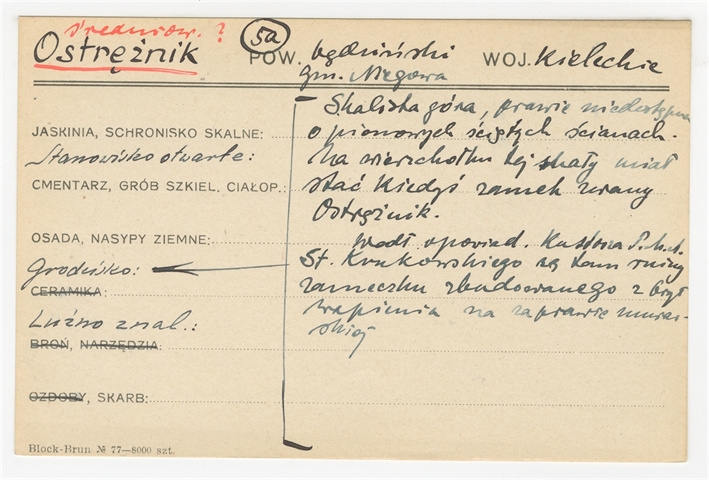 średniow. ?
Ostrężnik 5a POW. będziński WOJ. Kieleckie
gm. Niegowa
Skalista góra, prawie niedostępna
JASKINIA, SCHRONISKO SKALNE: o pionowych ściętych ścianach.
Stanowisko otwarte: Na wierzchołku tej skały miał
CMENTARZ, GRÓB SZKIEL. CIAŁOP.: stać kiedyś zamek zwany
Ostrężnik.
OSADA, NASYPY ZIEMNE: wedł. opowiad. Kustosza P.M.A.
Grodzisko: St. Krukowskiego są tam ruiny
CERAMIKA: zameczku zbudowanego z brył
Luźno znal.: wapienia na zaprawie murar-
BROŃ, NARZĘDZIA: skiej
OZDOBY, SKARB:
Block-Brun № 77—8000 szt.